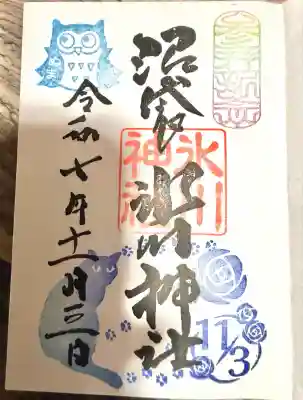 沼袋氷川神社
氷川
神社
令和七年十一月三日
11/3